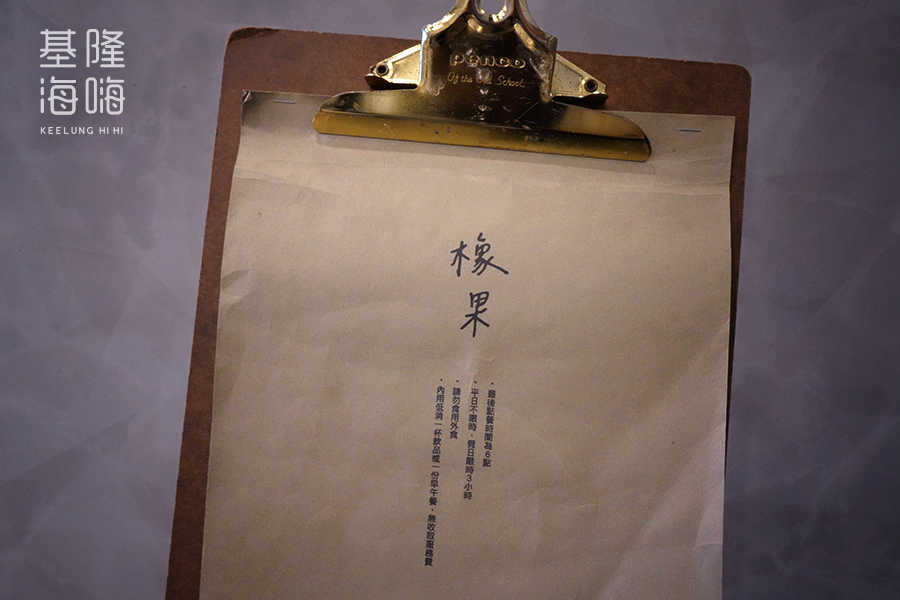 基隆
海嗨
KEELUNG HI HI
penco
Of the Old School
橡果
・最後點餐時間為6點
・平日不限時,假日限時3小時
・請勿食用外食
・內用低消一杯飲品或一份早午餐,無收取服務費